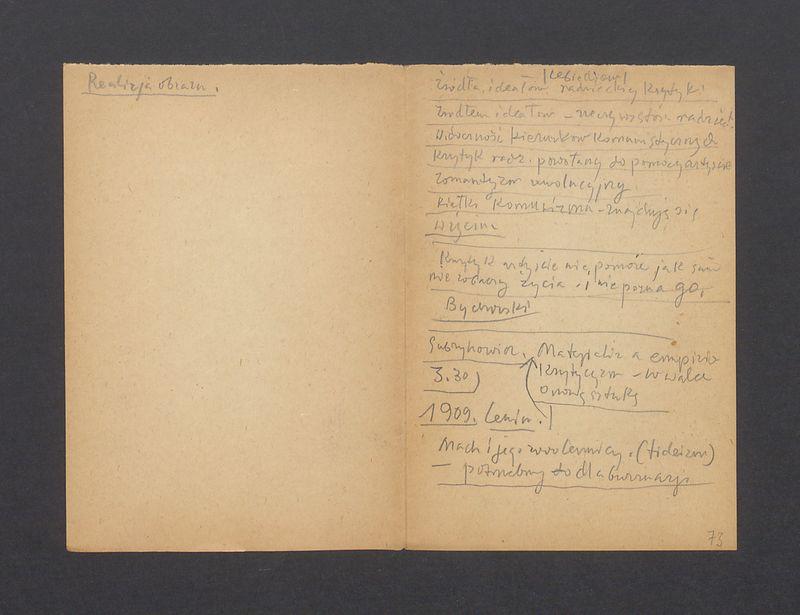 Realizacja obrazu.
Źródła ideałów radzieckiej krytyki
Źródłem ideałów – rzeczywistość radziec.
kierunków komunistycznych
Krytyk radz. powołany do pomocy artyście
romantyzm rewolucyjny
Kiełki komunizmu – znajdują się
w życiu
Krytyk artyście nie pomoże jak sam
nie zobaczy życia i nie pozna go.
Bychowski
Materializ a empirio
3.30)
krytycyzm – w walce
o nową sztukę
1909. Lenin.
Mach i jego zwolennicy. (fideizm)
– potrzebny to dla burżuazji
73